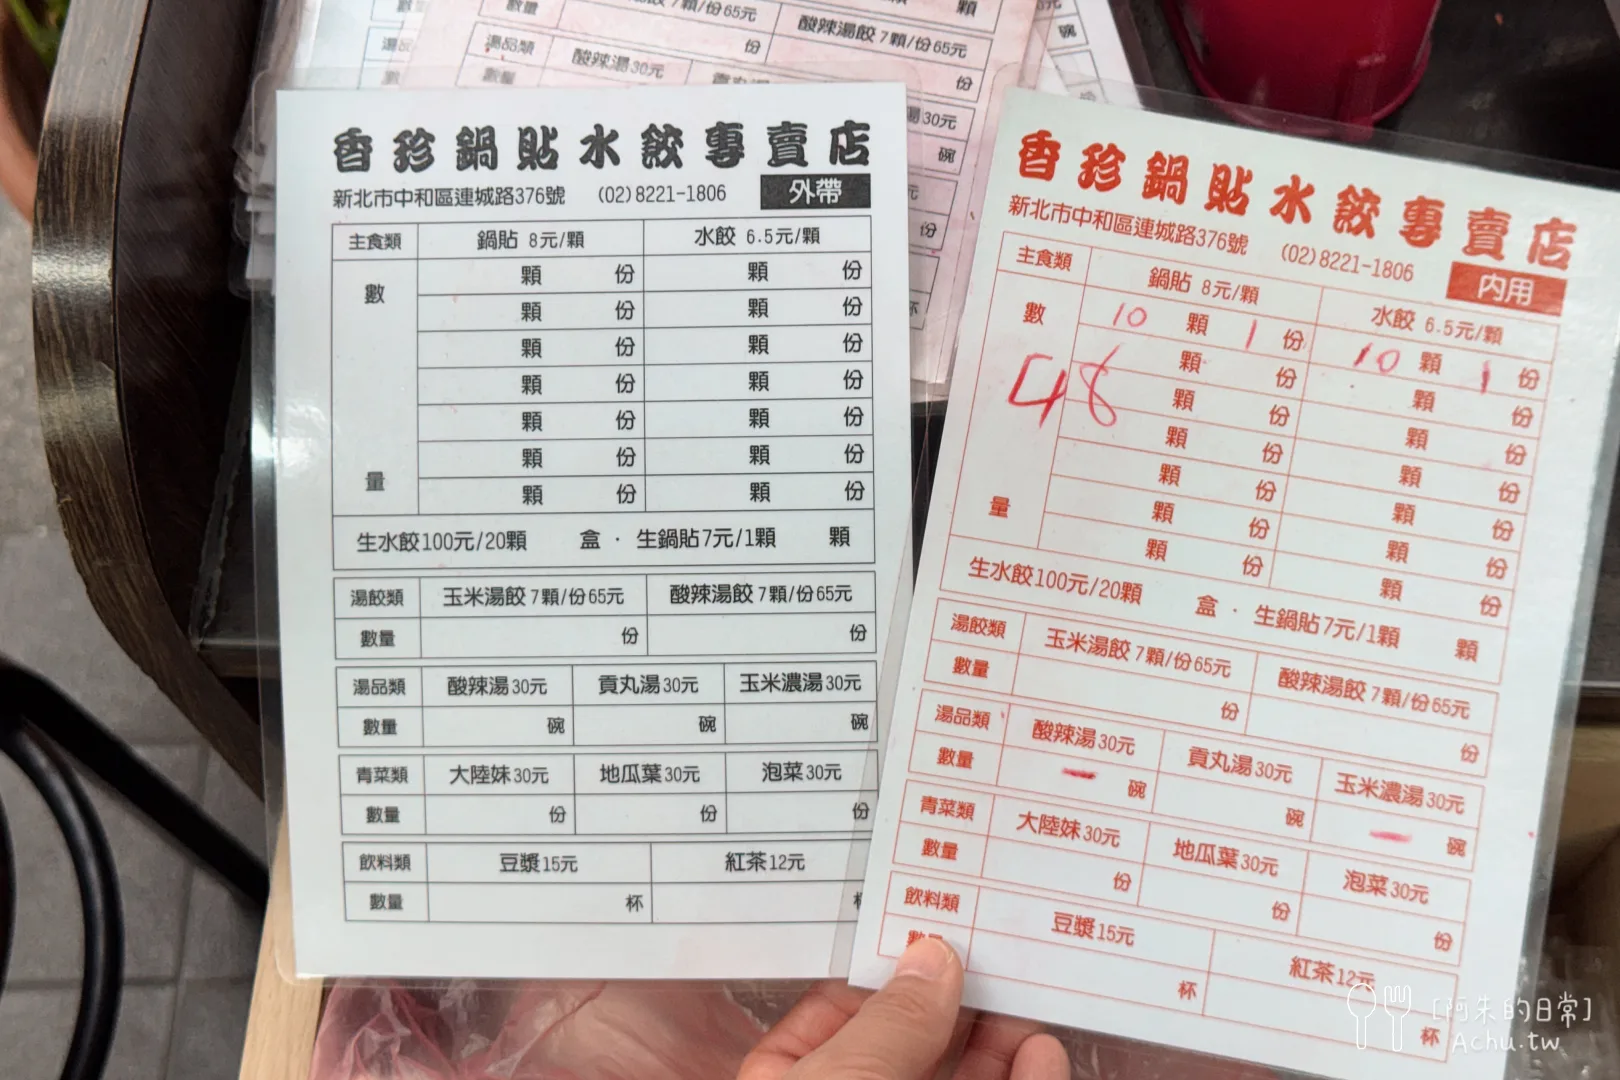 數量
7顆/份65元
顆
酸辣湯餃 7顆/份65元
碗
湯品類
酸辣湯30元
份
份
數量
湯30元
碗
份
香珍鍋貼水餃專賣店
新北市中和區連城路376號 (02)8221-1806 外帶
主食類 鍋貼 8元/顆 水餃 6.5元/顆
數 顆 份 顆 份
顆 份 顆 份
顆 份 顆 份
顆 份 顆 份
顆 份 顆 份
量 顆 份 顆 份
顆 份 顆 份
生水餃100元/20顆 盒 · 生鍋貼7元/1顆 顆
湯餃類 玉米湯餃 7顆/份65元 酸辣湯餃 7顆/份65元
數量 份 份
湯品類 酸辣湯30元 貢丸湯30元 玉米濃湯30元
數量 碗 碗 碗
青菜類 大陸妹30元 地瓜葉30元 泡菜30元
數量 份 份 份
飲料類 豆漿15元 紅茶12元
數量 杯
香珍鍋貼水餃專賣店
新北市中和區連城路376號 (02)8221-1806 內用
主食類 鍋貼 8元/顆 水餃 6.5元/顆
數 10 顆 1 份 10 顆 1 份
48 顆 份 顆 份
顆 份 顆 份
顆 份 顆 份
顆 份 顆 份
量 顆 份 顆 份
顆 份 顆 份
生水餃100元/20顆 盒 · 生鍋貼7元/1顆 顆
湯餃類 玉米湯餃 7顆/份65元 酸辣湯餃 7顆/份65元
數量 份 份
湯品類 酸辣湯30元 貢丸湯30元 玉米濃湯30元
數量 一 碗 碗 一 碗
青菜類 大陸妹30元 地瓜葉30元 泡菜30元
數量 份 份 份
飲料類 豆漿15元 紅茶12元
杯 杯
[阿朱的日常]
Achu.tw